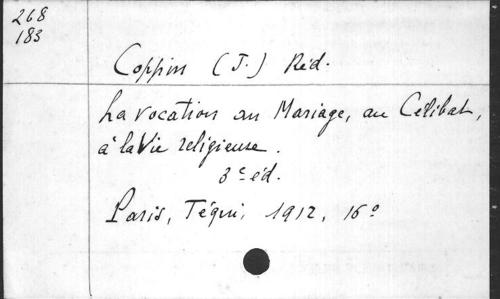 268
183
Coppin (J.) Réd.
La vocation au Mariage, au Célibat,
à la Vie religieuse.
3e éd.
Paris, Téqui, 1912, 16°